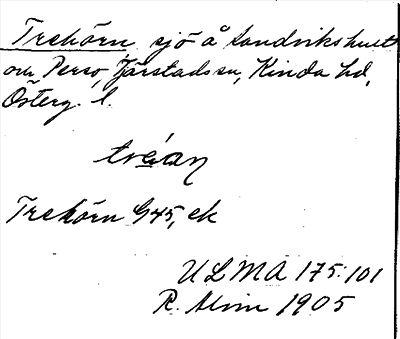 Trehörn sjö å Sandvikshult
och Persö, Tjärstads sn, Kinda hd,
Österg. l.
Trehörn G45, ek
ULMA 175:101
R. Alvin 1905